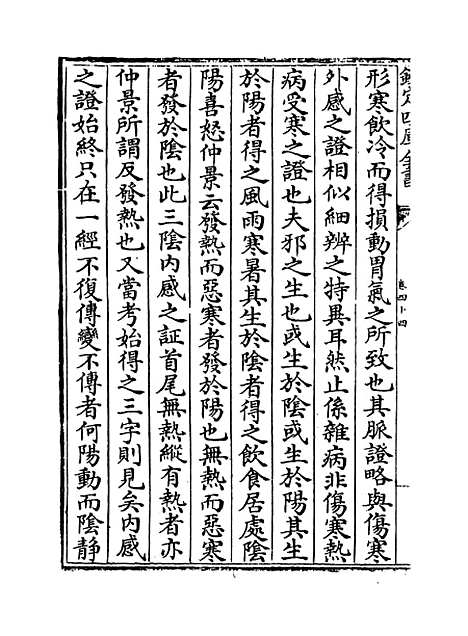 欽定四庫全書
卷四十四
形寒飲冷而得損動胃氣之所致也其脈證略與傷寒
外感之證相似細辨之特異耳然止係雜病非傷寒熱
病受寒之證也夫邪之生也或生於陰或生於陽其生
於陽者得之風雨寒暑其生於陰者得之飲食居處陰
陽喜怒仲景云發熱而惡寒者發於陽也無熱而惡寒
者發於陰也此三陰內感之証首尾無熱縱有熱者亦
仲景所謂反發熱也又當考始得之三字則見矣內感
之證始終只在一經不復傳變不傳者何陽動而陰靜